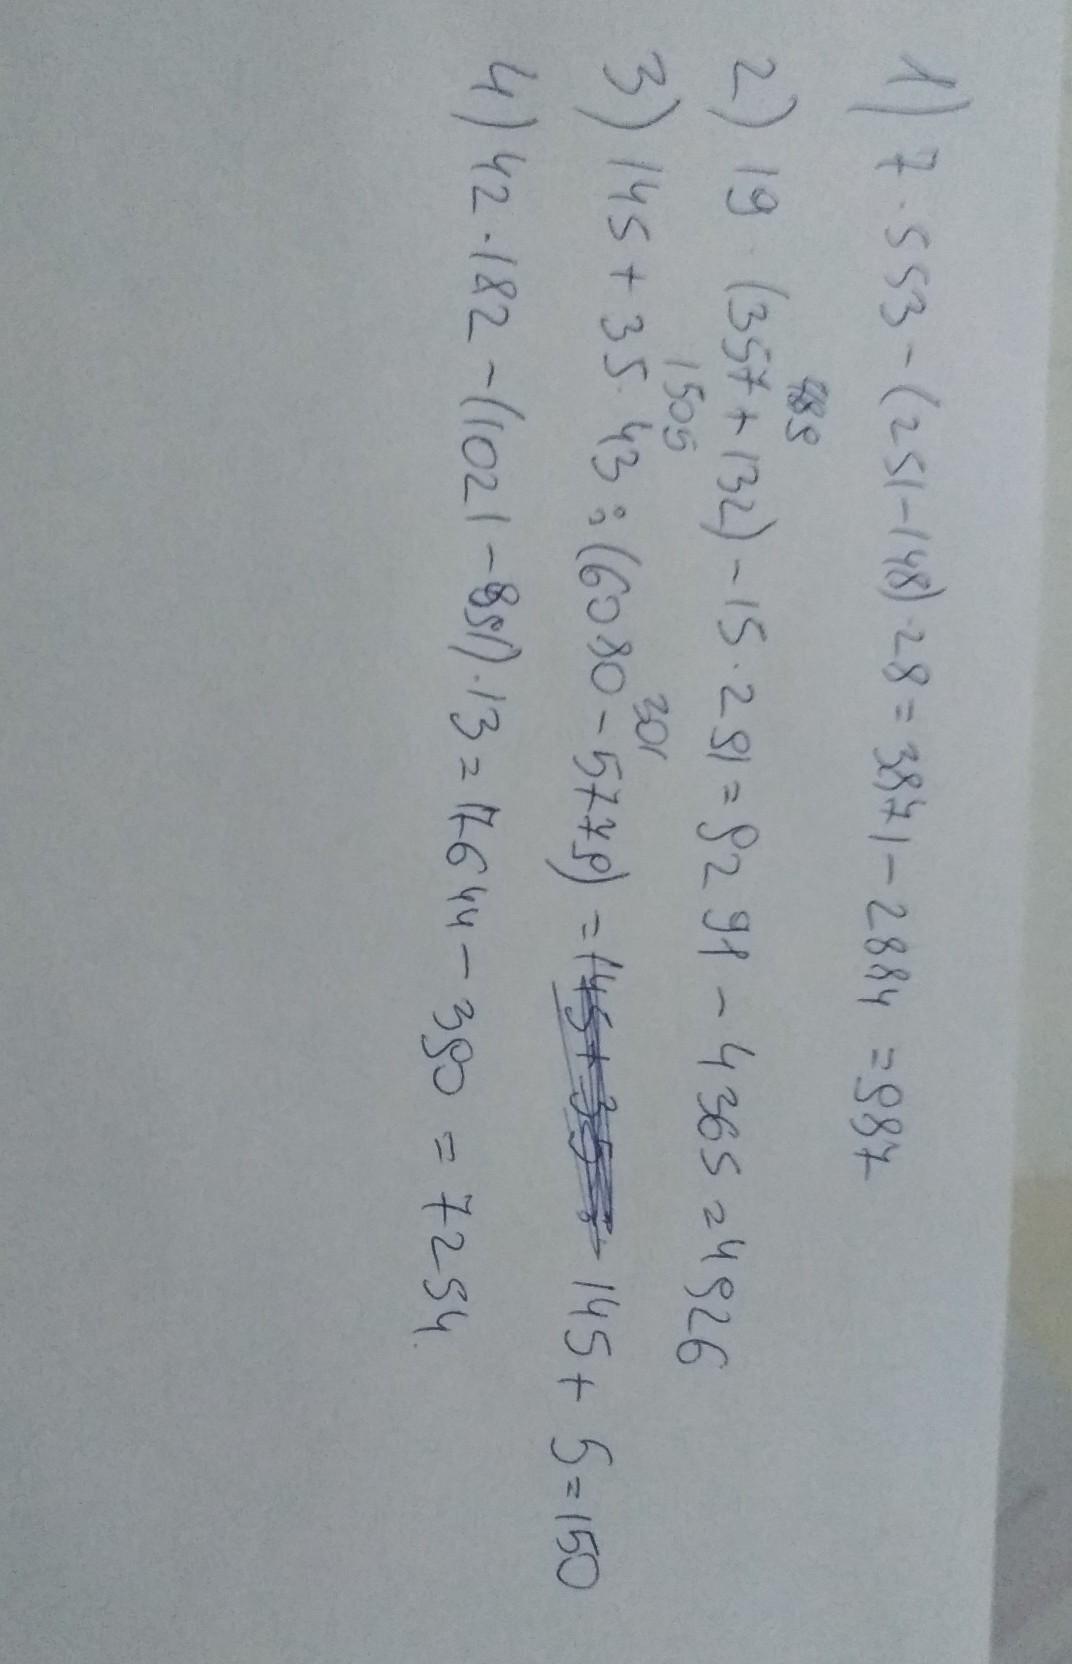 1) 7·553-(251-148)·28=3871-2884=987
489
2) 19·(357+132)-15·291=9291-4365=4926
1505 301
3) 145+35·43:(6080-5779)=145+5=150
4) 42·182-(1021-991)·13=7644-390=7254